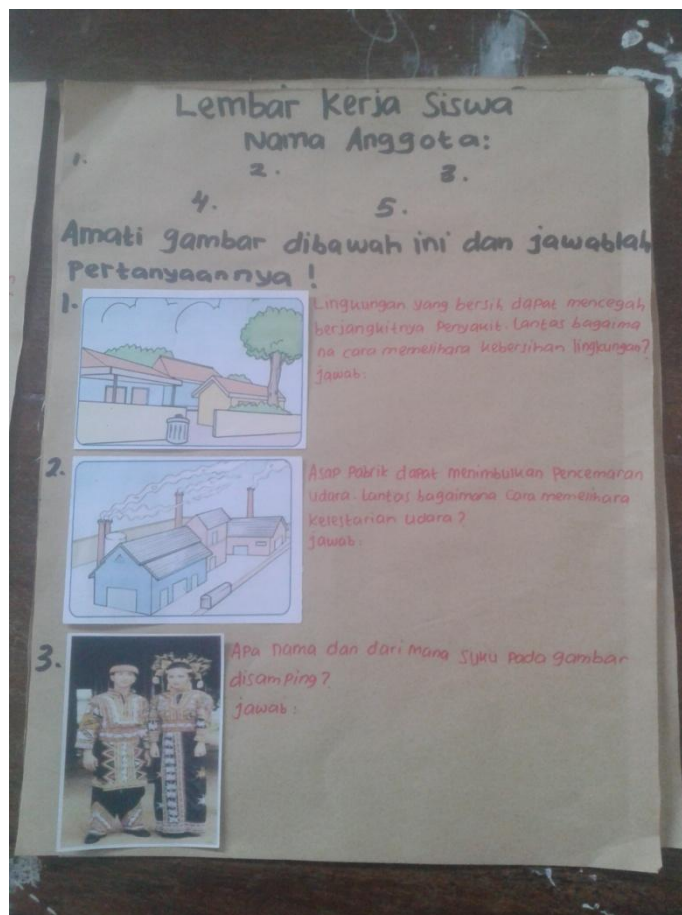 Lembar Kerja Siswa
Nama Anggota:
1. 2. 3.
4. 5.
Amati gambar dibawah ini dan jawablah
Pertanyaannya !
1. Lingkungan yang bersih dapat mencegah
berjangkitnya Penyakit. Lantas bagaima
na cara memelihara kebersihan lingkungan?
Jawab:
2. Asap Pabrik dapat menimbulkan Pencemaran
udara. Lantas bagaimana Cara memelihara
kelestarian udara?
Jawab:
3. Apa nama dan dari mana suku pada gambar
disamping?
Jawab: